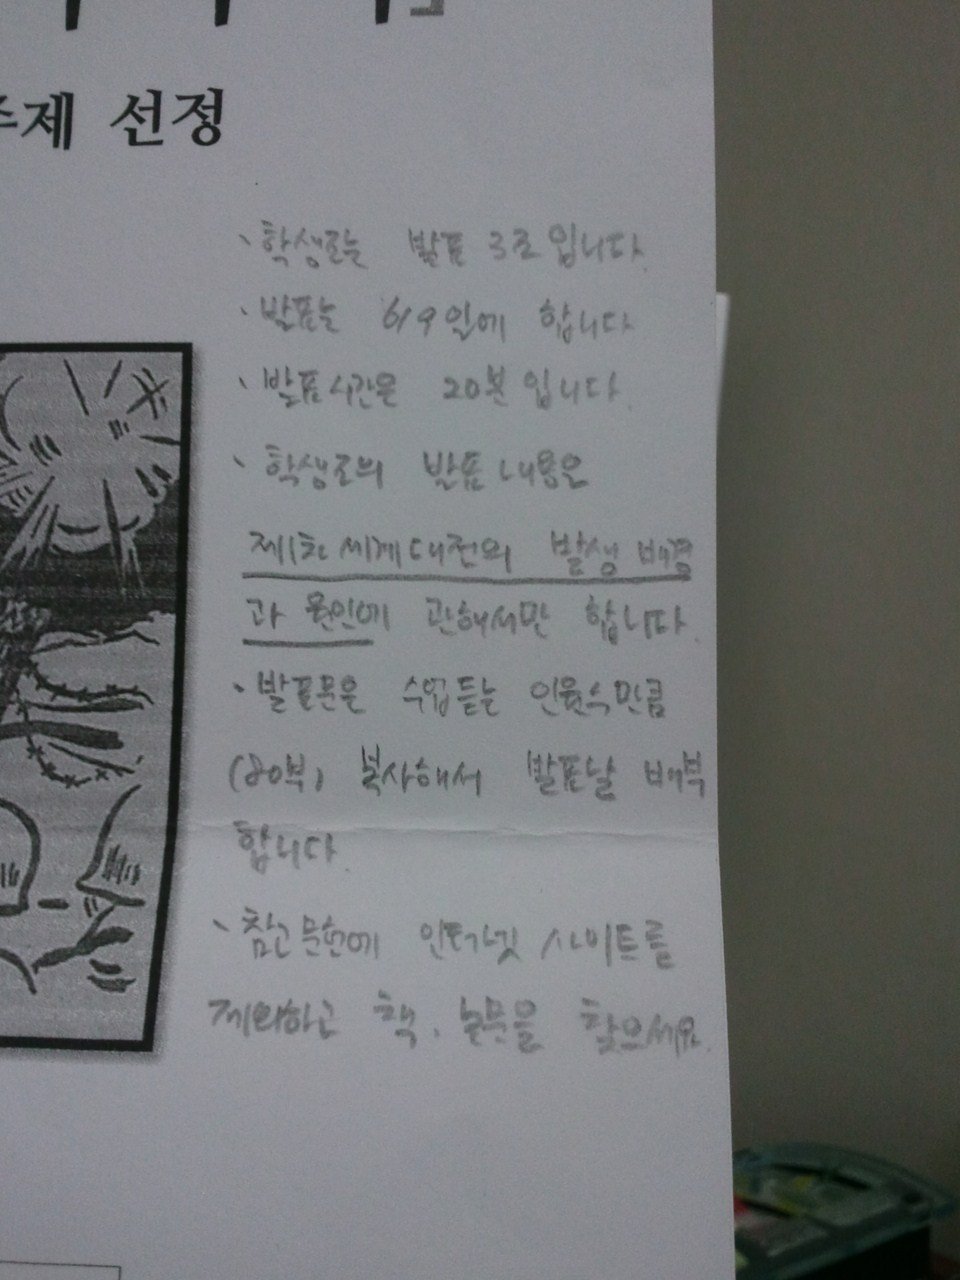 주제 선정
· 학생조는 발표 3조입니다.
· 발표는 6/9일에 합니다
· 발표시간은 20분입니다.
· 학생조의 발표내용은
제1차세계대전의 발생 배경
과 원인에 관해서만 합니다.
· 발표문은 수업듣는 인원수만큼
(80부) 복사해서 발표날 배부
합니다.
· 참고문헌에 인터넷 사이트를
제외하고 책, 논문을 찾으세요.